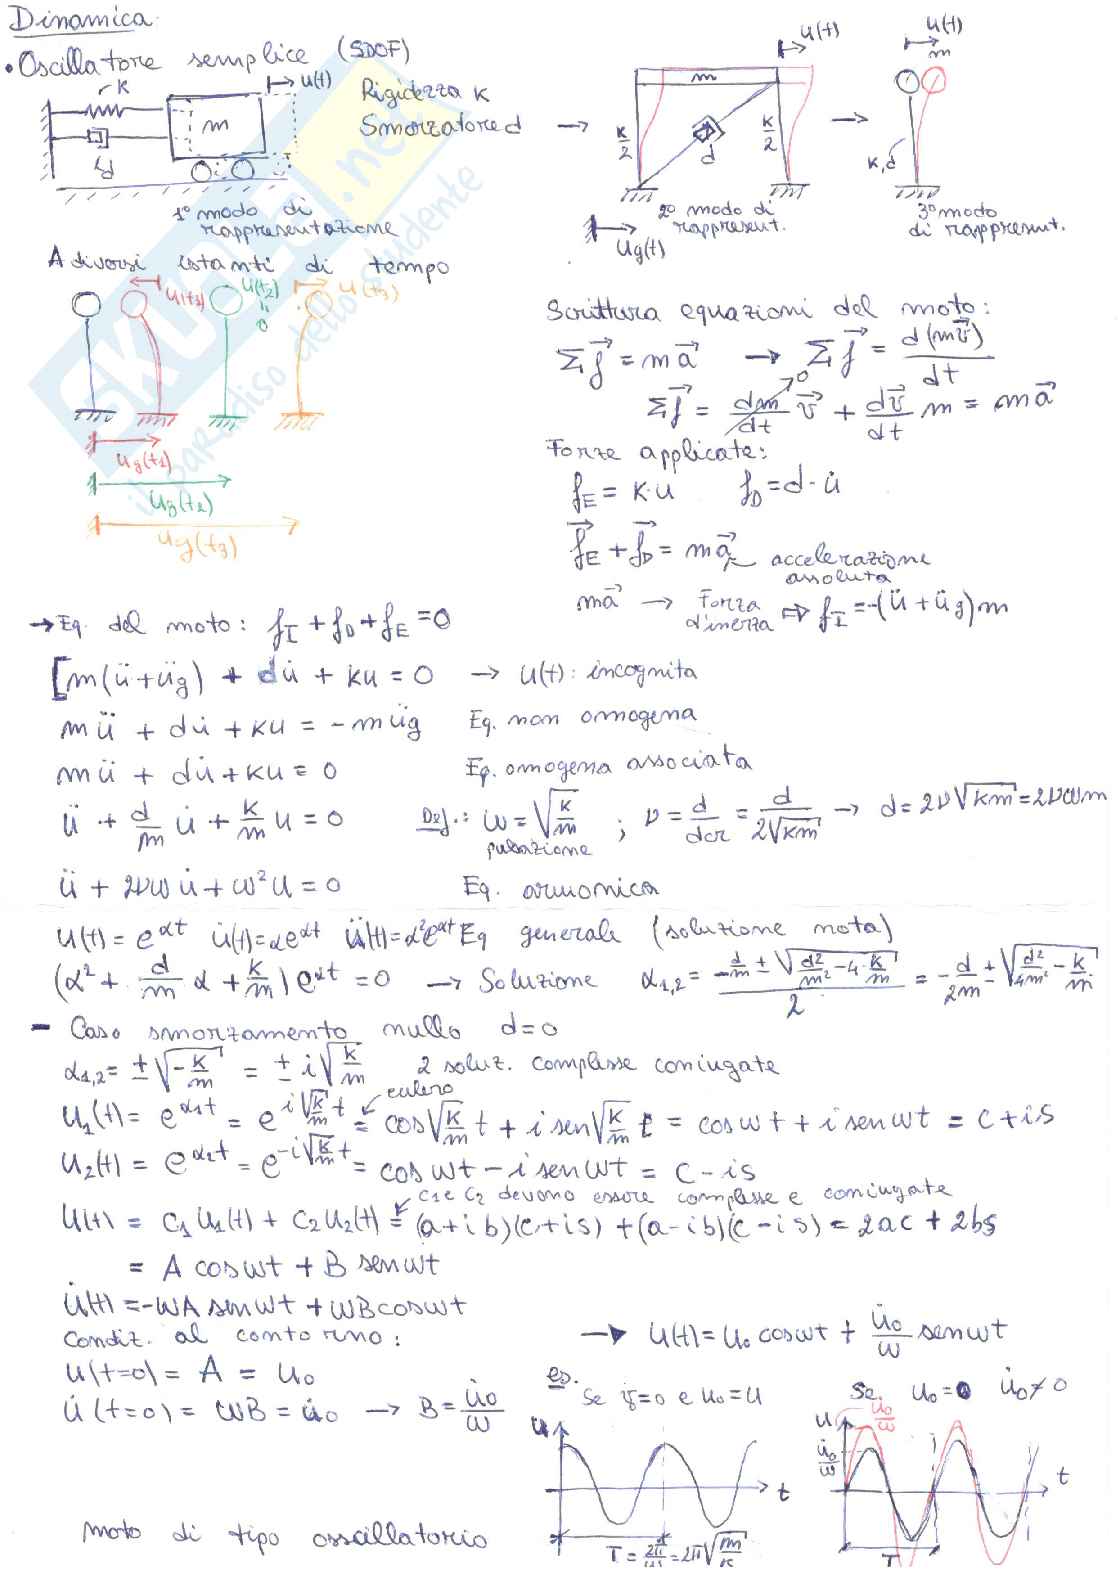 Dinamica
• Oscillatore semplice (SDOF)
K
u(t)
m
d
Rigidezza K
Smorzatore d
1° modo di
rappresentazione
→
u(t)
m
K/2
K/2
d
ug(t)
2° modo di
rappresent.
→
u(t)
m
K,d
3° modo
di rappresent.
A diversi istanti di tempo
u(t1)
u(t2)
=
0
u(t3)
ug(t1)
ug(t2)
ug(t3)
SKUOLA.net
il paradiso dello studente
Scrittura equazioni del moto:
Σf⃗ = ma⃗ → Σf⃗ = d(mv⃗)/dt
Σf⃗ = dm/dt v⃗ + dv⃗/dt m = ma⃗
0
Forze applicate:
fE = K·u fD = d·u̇
f⃗E + f⃗D = ma⃗
accelerazione
assoluta
ma⃗ → Forza d'inerzia ⇨ fI = -(ü + üg)m
→ Eq. del moto: fI + fD + fE = 0
[m(ü+üg) + du̇ + ku = 0 → u(t): incognita
mü + du̇ + ku = -müg Eq. non omogena
mü + du̇ + ku = 0 Eq. omogena associata
ü + d/m u̇ + k/m u = 0 Def.: ω = √(k/m) ; ν = d/dcr = d/(2√(km)) → d = 2ν√(km) = 2νωm
pulsazione
ü + 2νωu̇ + ω²u = 0 Eq. armonica
u(t) = e^αt u̇(t) = αe^αt ü(t) = α²e^αt Eq generale (soluzione nota)
(α² + d/m α + k/m) e^αt = 0 → Soluzione α1,2 = (-d/m ± √(d²/m² - 4·k/m))/2 = -d/2m ± √(d²/4m² - k/m)
- Caso smorzamento nullo d=0
α1,2 = ±√(-k/m) = ± i√(k/m) 2 soluz. complesse coniugate
eulero
u1(t) = e^α1t = e^i√(k/m)t = cos√(k/m) t + i sen√(k/m) t = cosωt + i senωt = c + is
u2(t) = e^α2t = e^-i√(k/m)t = cosωt - i senωt = c - is
c1 e c2 devono essere complesse e coniugate
u(t) = c1u1(t) + c2u2(t) = (a+ib)(c+is) + (a-ib)(c-is) = 2ac + 2bs
= A cosωt + B senωt
u̇(t) = -ωA senωt + ωB cosωt
Condiz. al contorno:
→ u(t) = u0 cosωt + u̇0/ω senωt
u(t=0) = A = u0
u̇(t=0) = ωB = u̇0 → B = u̇0/ω
es.
Se v̇=0 e u0=u
u
t
T = 2π/ω = 2π√(m/k)
Se. u0=0 u̇0≠0
u
u̇0/ω
u̇0/ω
t
T
moto di tipo oscillatorio